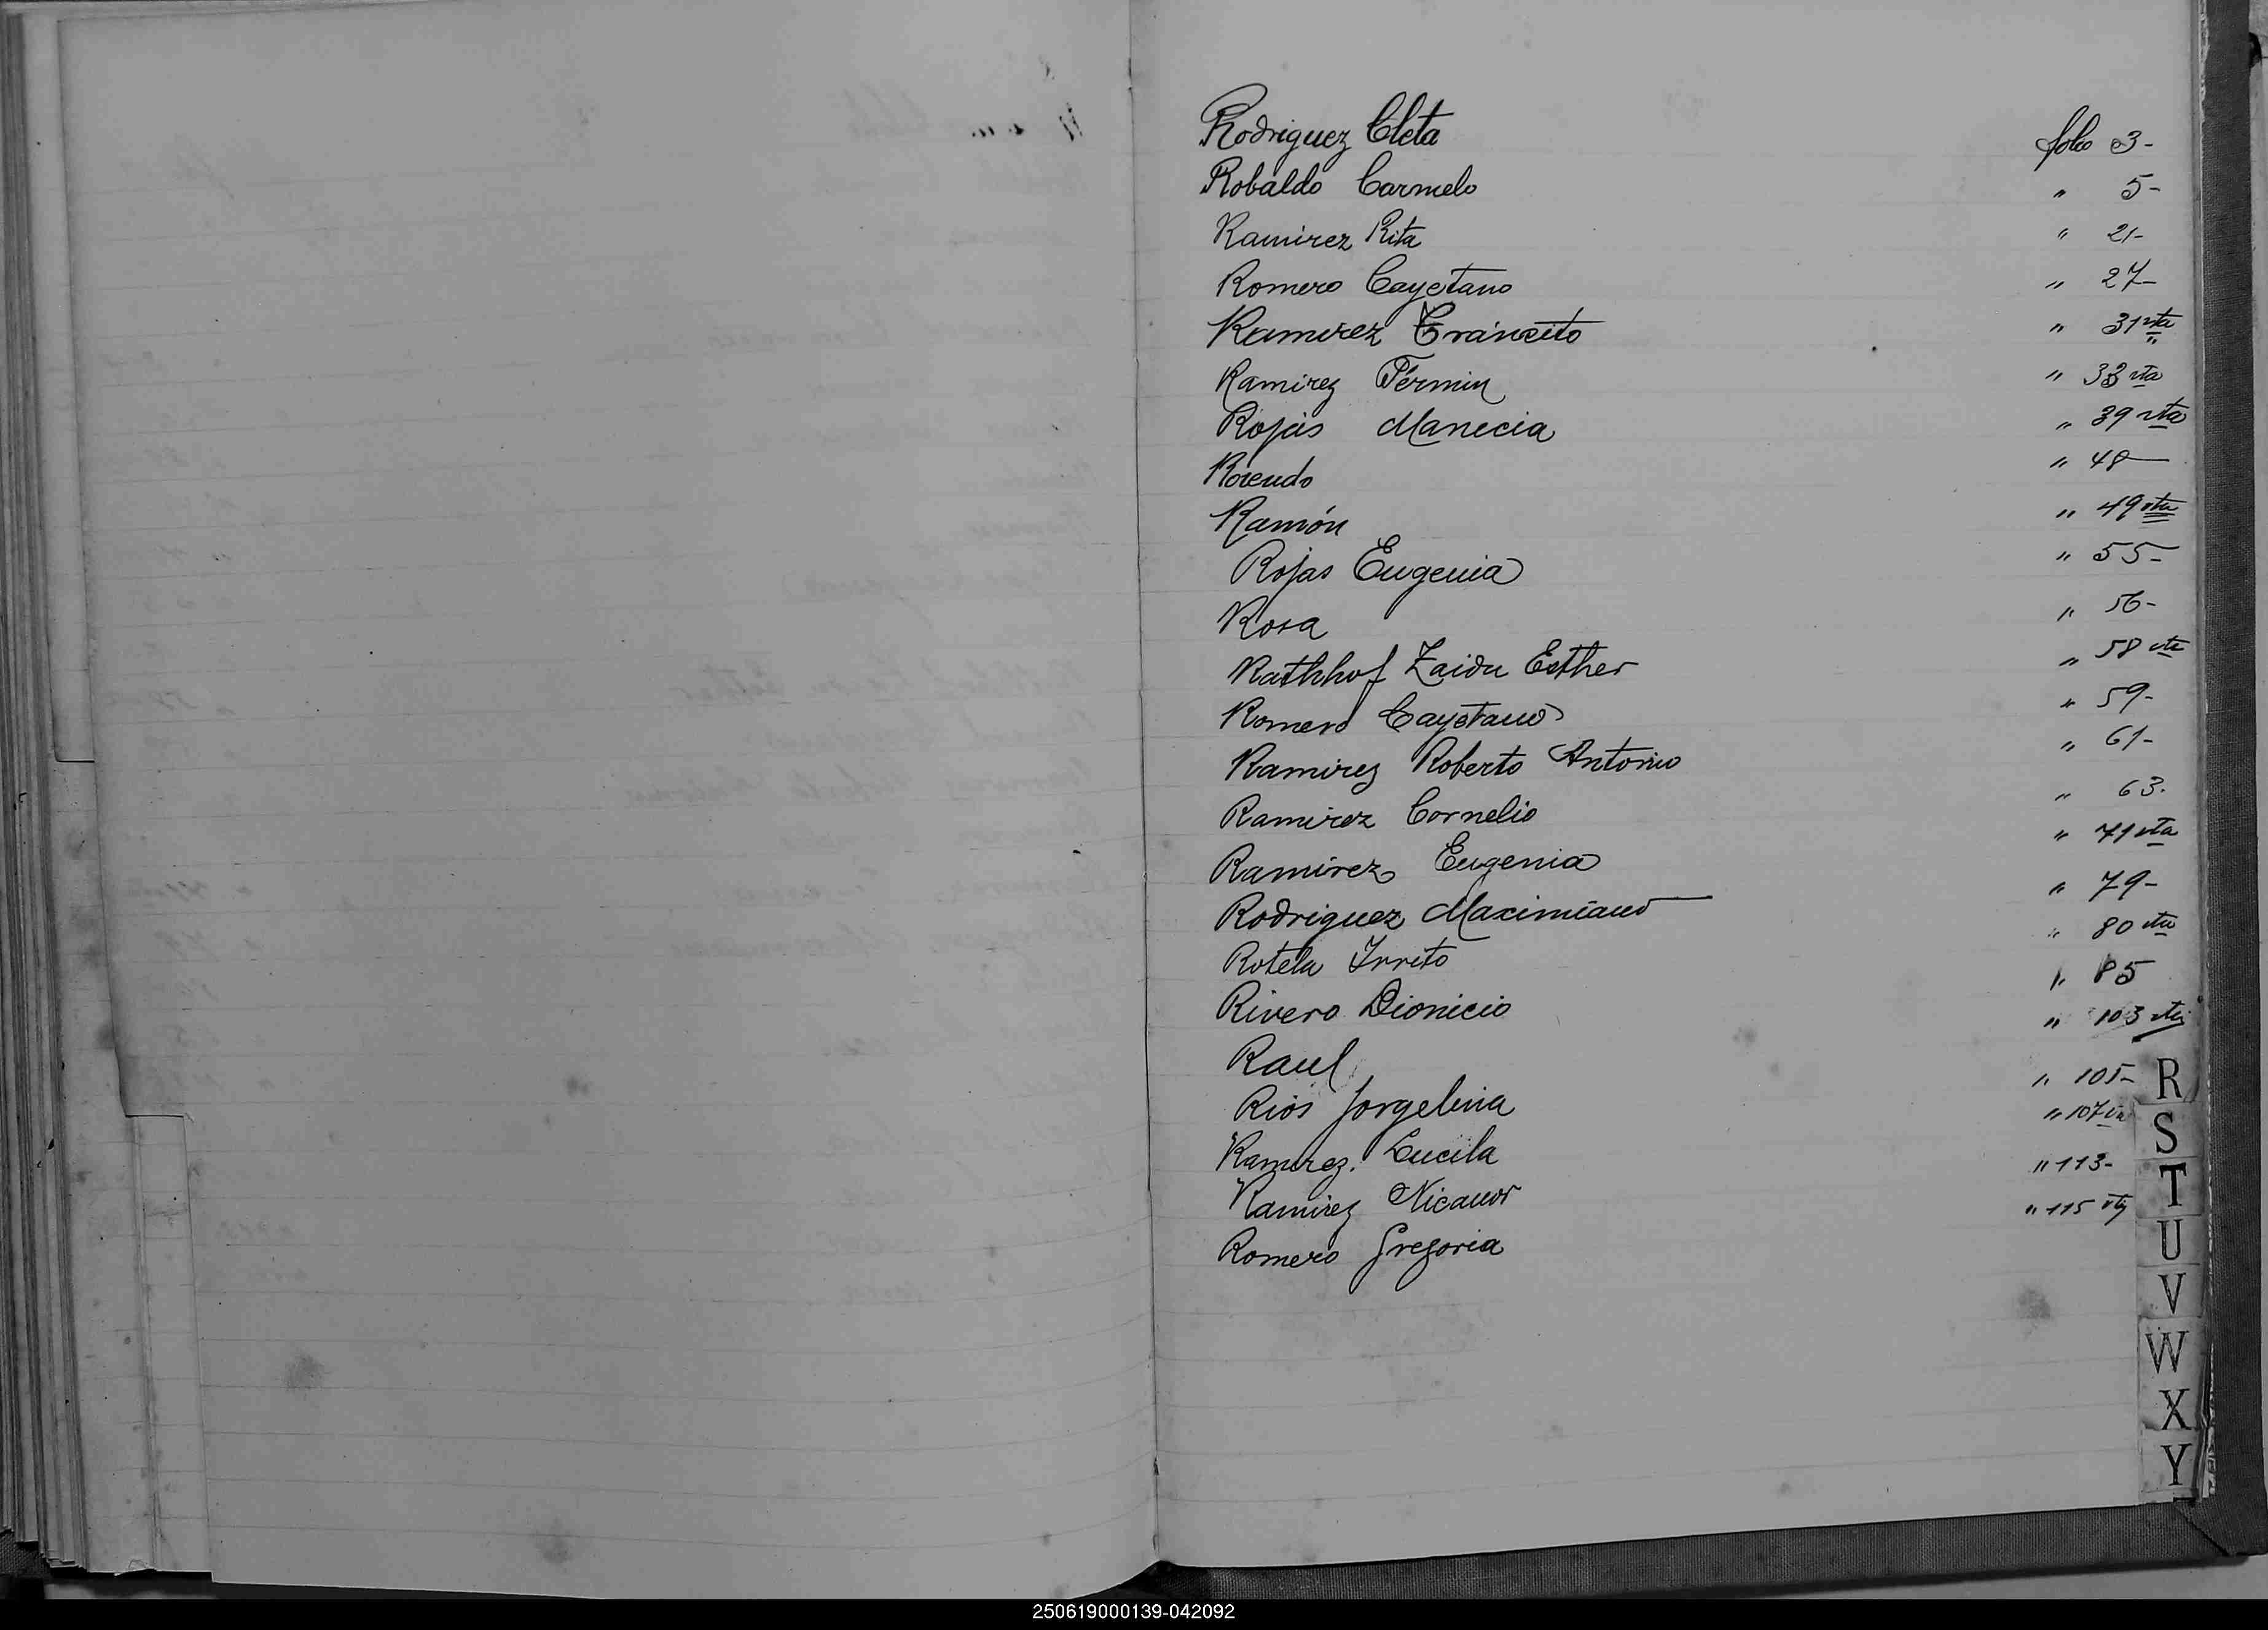 Rodriguez Cleta folio 3-
Robaldo Carmelo " 5-
Ramirez Rita " 21-
Romero Cayetano " 27-
Ramirez Tránsito " 31 vta
Ramirez Fermin " 33 vta
Rojas Manecia " 39 vta
Rosendo " 48-
Ramón " 49 vta
Rojas Eugenia " 55-
Rosa " 56-
Rathhof Zaida Esther " 58 vta
Romero Cayetano " 59-
Ramirez Roberto Antonio " 61-
Ramirez Cornelio " 63.
Ramirez Eugenia " 71 vta
Rodriguez Maximiano " 79-
Rotela Irrito " 80 vta
Rivero Dionicio " 85
Raul " 103 vta
Rios Jorgelina " 105-
Ramirez. Lucila " 107 vta
Ramirez Nicanor " 113-
Romero Gregoria " 115 vta
R
S
T
U
V
W
X
Y
250619000139-042092